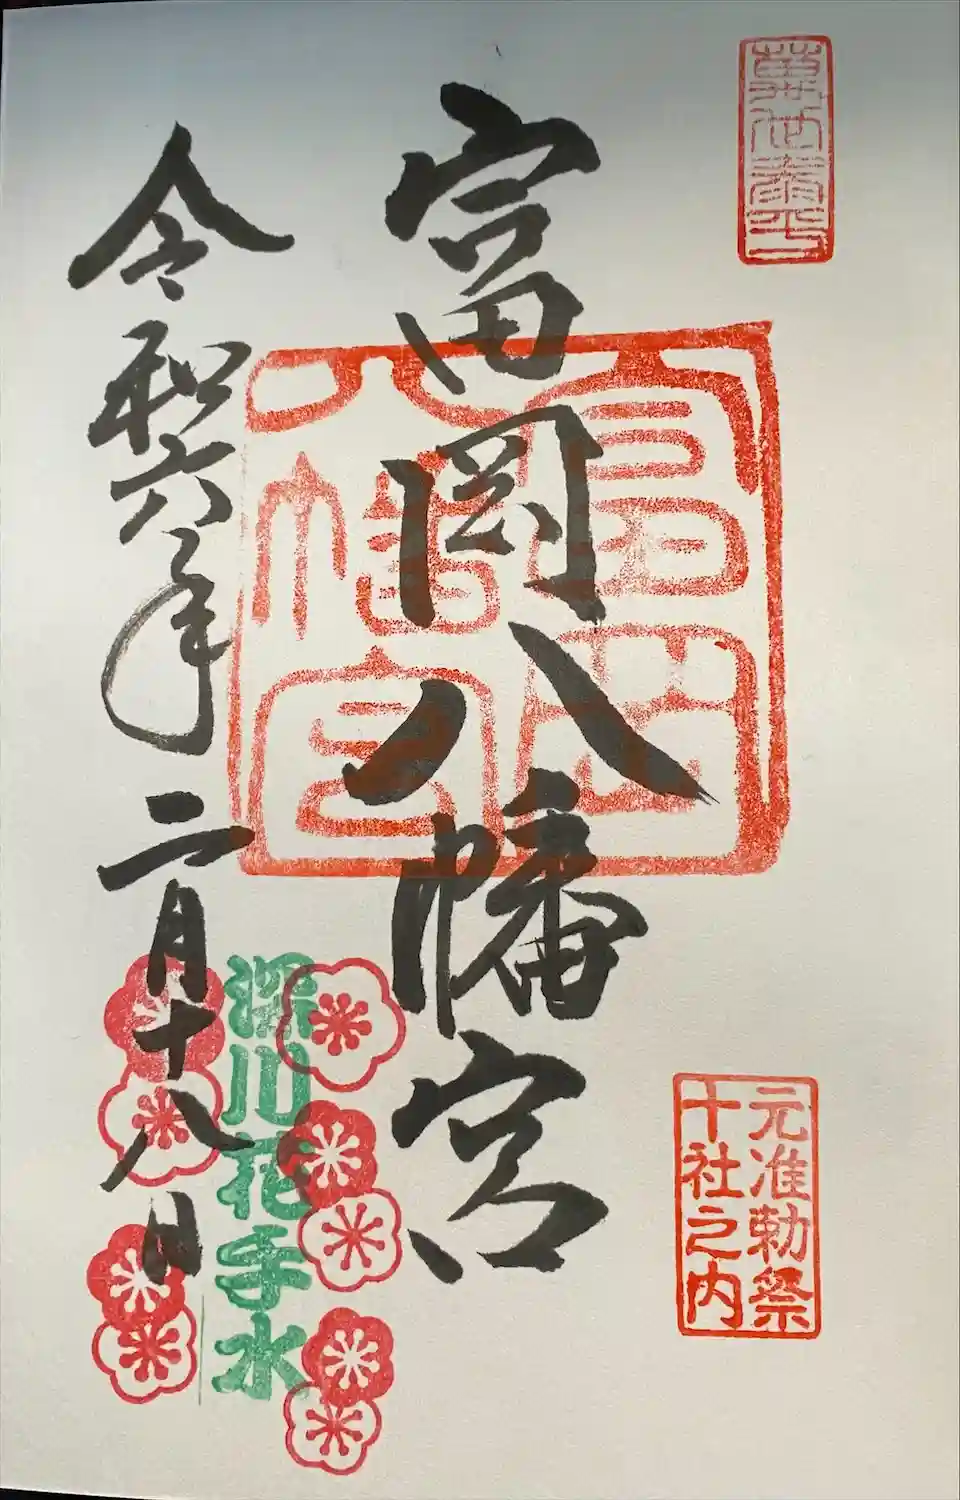 元准勅祭
十社之内
富岡八幡宮
富岡
八幡宮
深川花手水
令和六年二月十八日